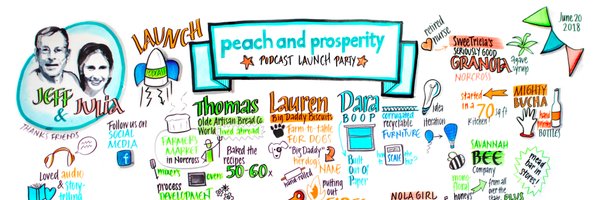 JEFF
& JULIA
THANKS FRIENDS
Follow us on
SOCIAL
MEDIA
f
Loved audio
& story-
telling
LAUNCH
peach and prosperity
PODCAST LAUNCH PARTY
Thomas
Olde Artisan Bread Co.
World
FARMER'S
MARKET
in Norcross
Baked the
recipes
50-60x
mixers
oven
process
DEVELOPMENT
Lauren
Big Daddy Biscuits
Farm to table
FOR DOGS
"Big Daddy"
her dog's
NAME
hand rolled
putting
out
FIRES
Dara
BOOP
corrugated
recyclable
FURNITURE
Built
Out of
Paper
SCALE
the
idea
iteration
NOLA GIRL
retired
nurse
SWEETRICIA'S
SERIOUSLY GOOD
GRANOLA
NORCROSS
agave
syrup
June 20
2018
started
in a
70 sq ft
Kitchen!
MIGHTY
BUCHA
hand
BOTTLES
SAVANNAH
BEE
Company
honeys
from all
over the
mead bar
in
store!